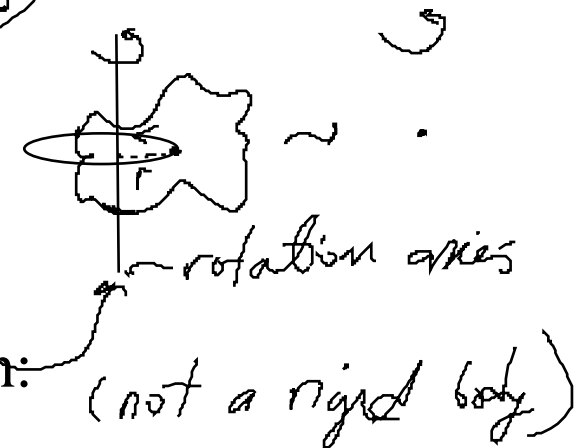 r
rotation axies
n:
(not a rigid body)